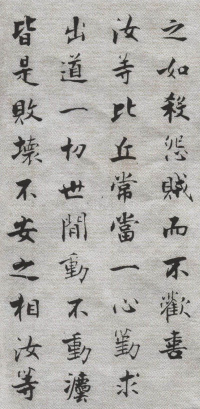 之如殺怨賊而不歡喜
汝等比丘常當一心勤求
出道一切世間動不動法
皆是敗壞不安之相汝等